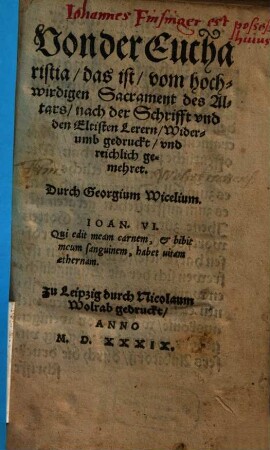 Iohannes Finsinger est posses
huius
Von der Eucha
ristia / das ist / vom hoch-
wirdigen Sacrament des Al-
tars / nach der Schrifft vnd
den Eltisten Lerern / Wider-
umb gedruckt / vnd
reichlich ge-
mehret.
Durch Georgium Wicelium.
IOAN. VI.
QVi edit meam carnem, & bibit
meum sanguinem, habet uitam
æthernam.
Zu Leipzig durch Nicolaum
Wolrab gedruckt /
ANNO
M. D. XXXIX.